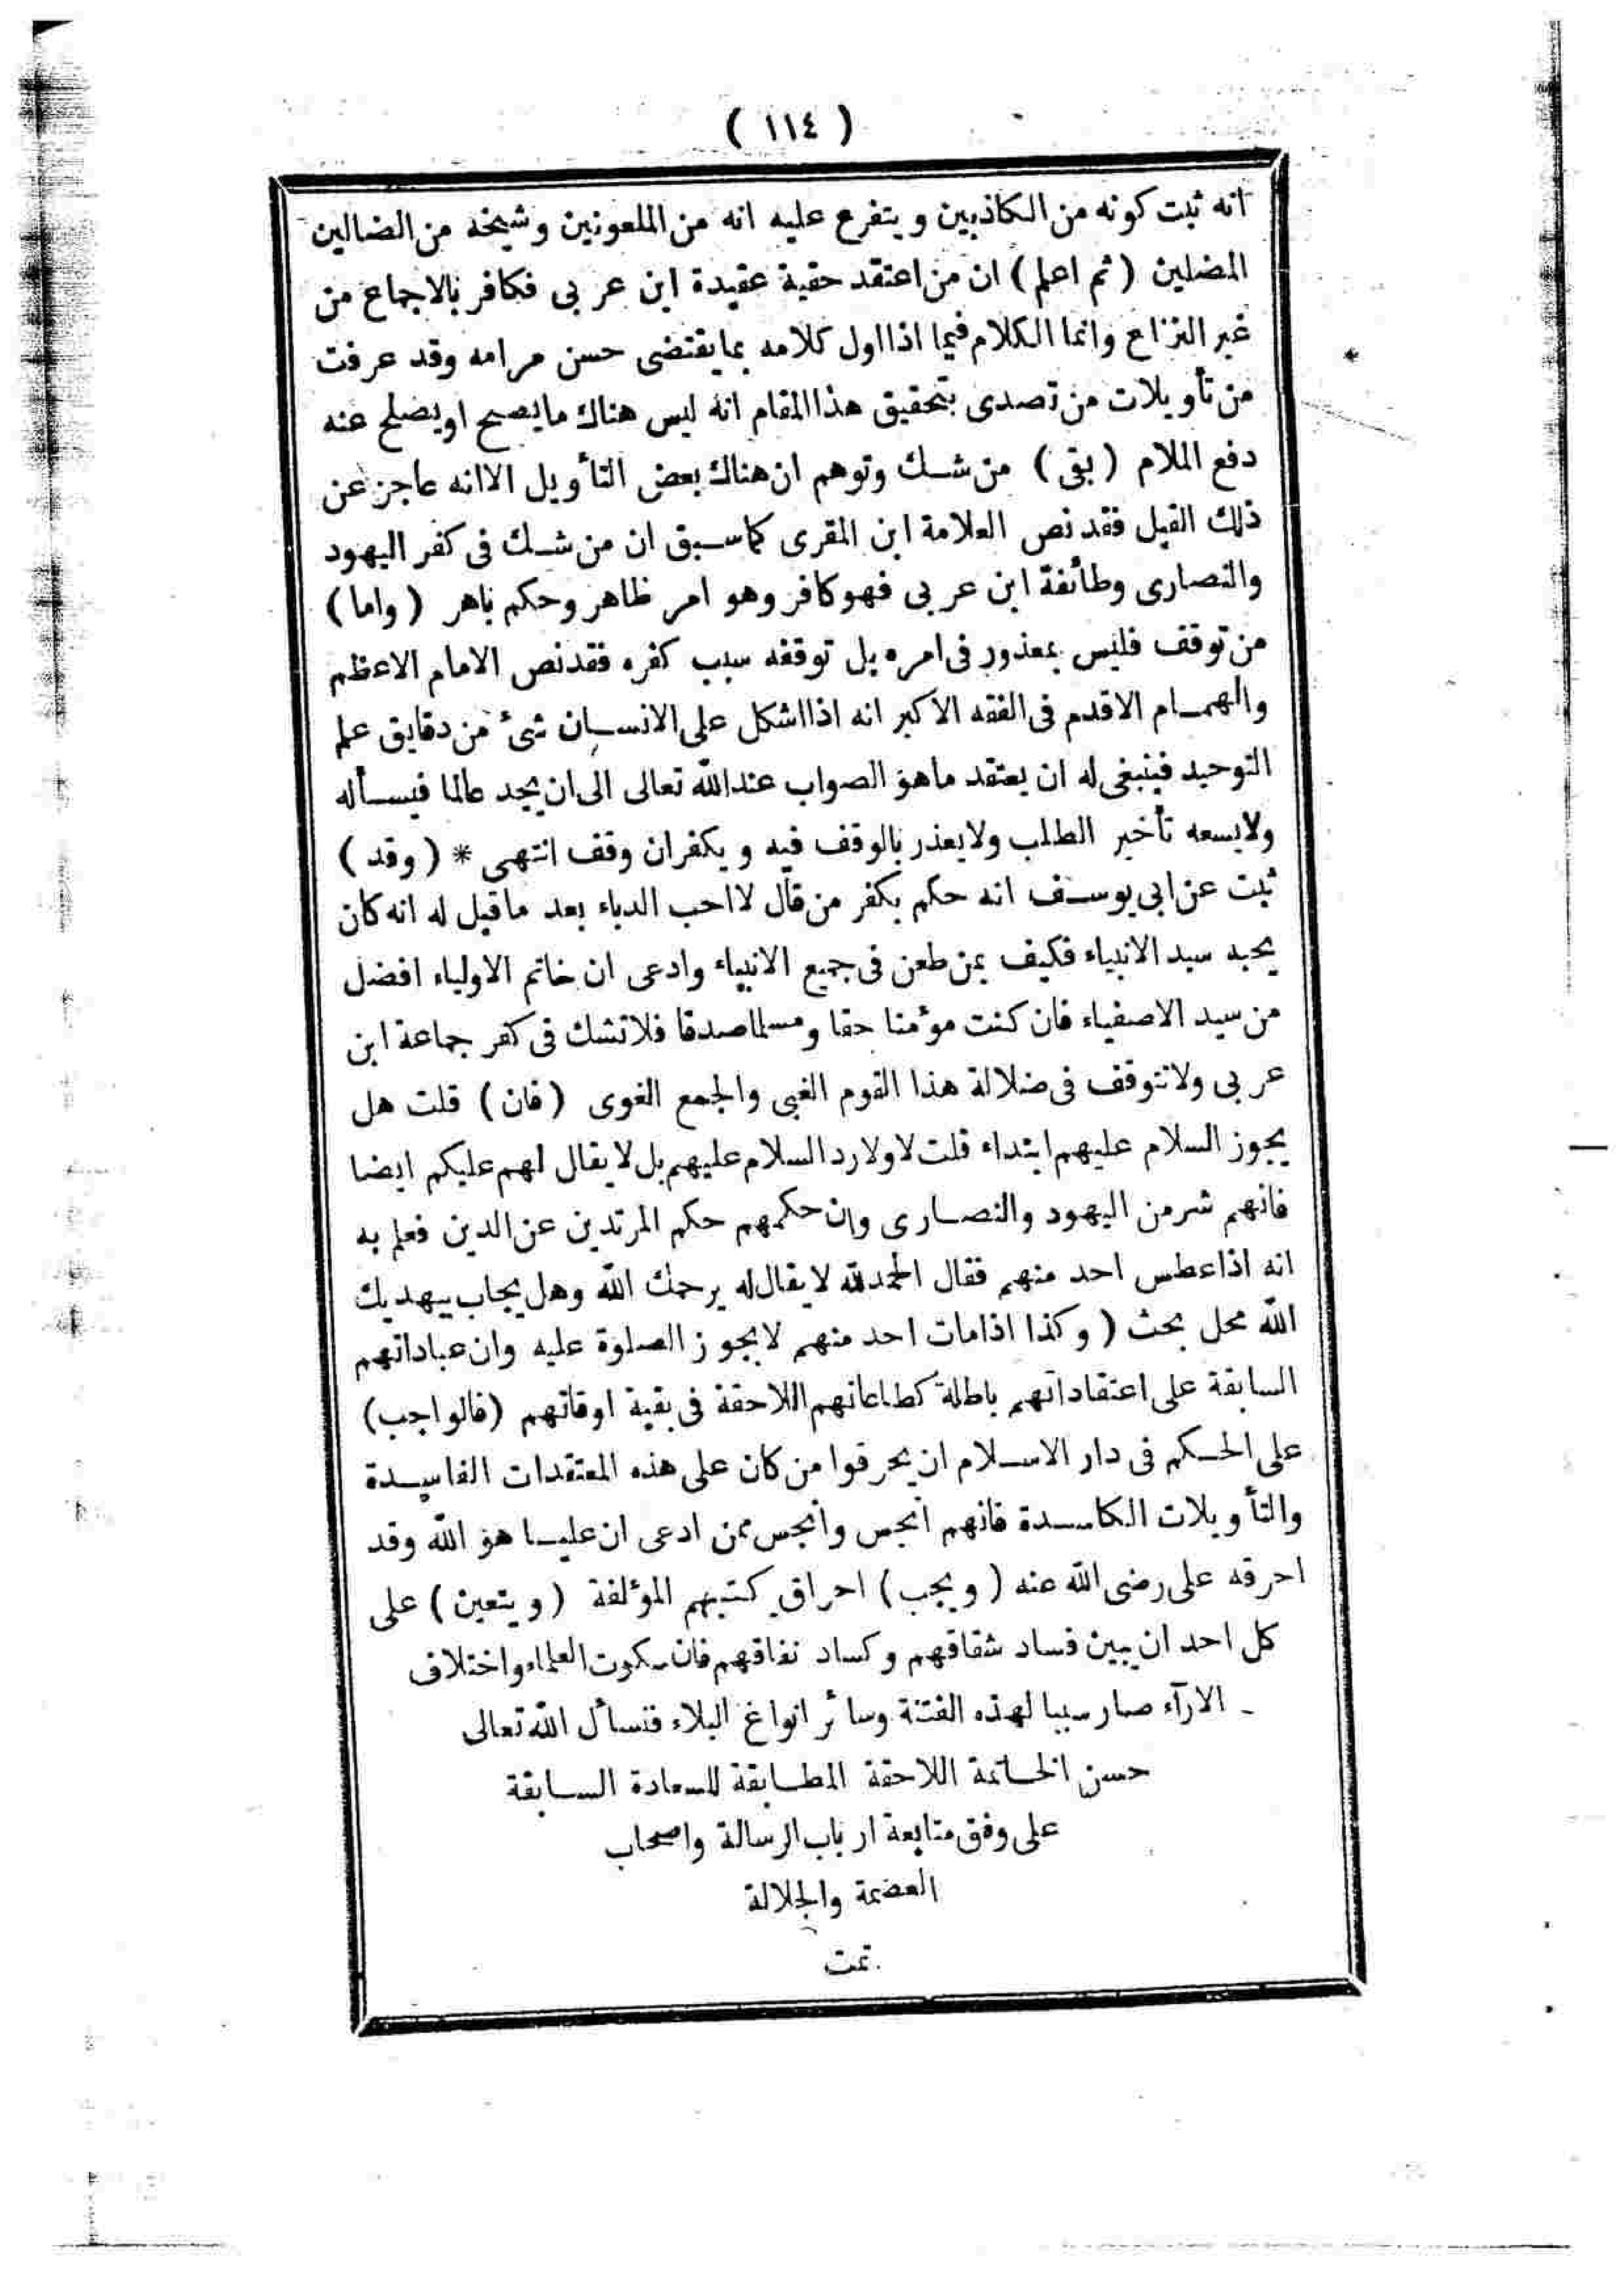 ( ١١٤ )
انه ثبت كونه من الكاذبين ويتفرع عليه انه من الملعونين وشيخه من الضالين
المضلين ( ثم اعلم ) ان من اعتقد حقية عقيدة ابن عربى فكافر بالاجماع من
غير النزاع وانما الكلام فيما اذا اول كلامه بما يقتضى حسن مرامه وقد عرفت
من تأويلات من تصدى بتحقيق هذا المقام انه ليس هناك ما يصح او يصلح عنه
دفع الملام ( بقى ) من شك وتوهم ان هناك بعض التأويل الا انه عاجز عن
ذلك القيل فقد نص العلامة ابن المقرى كما سبق ان من شك فى كفر اليهود
والنصارى وطائفة ابن عربى فهو كافر وهو امر ظاهر وحكم باهر ( واما )
من توقف فليس بمعذور فى امره بل توقفه سبب كفره فقد نص الامام الاعظم
والهمام الاقدم فى الفقه الاكبر انه اذا اشكل على الانسان شئ من دقايق علم
التوحيد فينبغى له ان يعتقد ما هو الصواب عند الله تعالى الى ان يجد عالما فيسأله
ولا يسعه تأخير الطلب ولا يعذر بالوقف فيه ويكفر ان وقف انتهى * ( وقد )
ثبت عن ابى يوسف انه حكم بكفر من قال لا احب الدباء بعد ما قيل له انه كان
يحبه سيد الانبياء فكيف بمن طعن فى جميع الانبياء وادعى ان خاتم الاولياء افضل
من سيد الاصفياء فان كنت مؤمنا حقا ومسلما صدقا فلا تشك فى كفر جماعة ابن
عربى ولا تتوقف فى ضلالة هذا القوم الغبى والجمع الغوى ( فان ) قلت هل
يجوز السلام عليهم ابتداء قلت لا ولا رد السلام عليهم بل لا يقال لهم عليكم ايضا
فانهم شر من اليهود والنصارى وان حكمهم حكم المرتدين عن الدين فعلم به
انه اذا عطس احد منهم فقال الحمد لله لا يقال له يرحمك الله وهل يجاب بيهديك
الله محل بحث ( وكذا اذا مات احد منهم لا يجوز الصلوة عليه وان عباداتهم
السابقة على اعتقاداتهم باطلة كطاعاتهم اللاحقة فى بقية اوقاتهم ( فالواجب )
على الحكم فى دار الاسلام ان يحرقوا من كان على هذه المعتقدات الفاسدة
والتأويلات الكاسدة فانهم انجس وانجس ممن ادعى ان عليا هو الله وقد
احرقه على رضى الله عنه ( ويجب ) احراق كتبهم المؤلفة ( ويتعين ) على
كل احد ان يبين فساد شقاقهم وكساد نفاقهم فان سكوت العلماء واختلاف
الارآء صار سببا لهذه الفتنة وسائر انواع البلاء فنسأل الله تعالى
حسن الخاتمة اللاحقة المطابقة للسعادة السابقة
على وفق متابعة ارباب الرسالة واصحاب
العضمة والجلالة
تمت